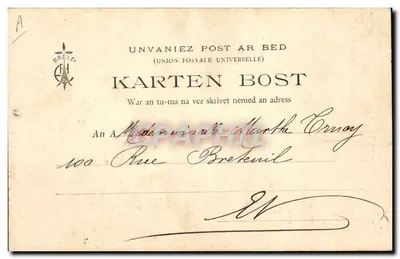 A
BREIZ
UNVANIEZ POST AR BED
(UNION POSTALE UNIVERSELLE)
KARTEN BOST
War an tu-ma na vez skrivet nemed an adress
An A Mademoiselle Marthe
100 Rue Breteuil
EV